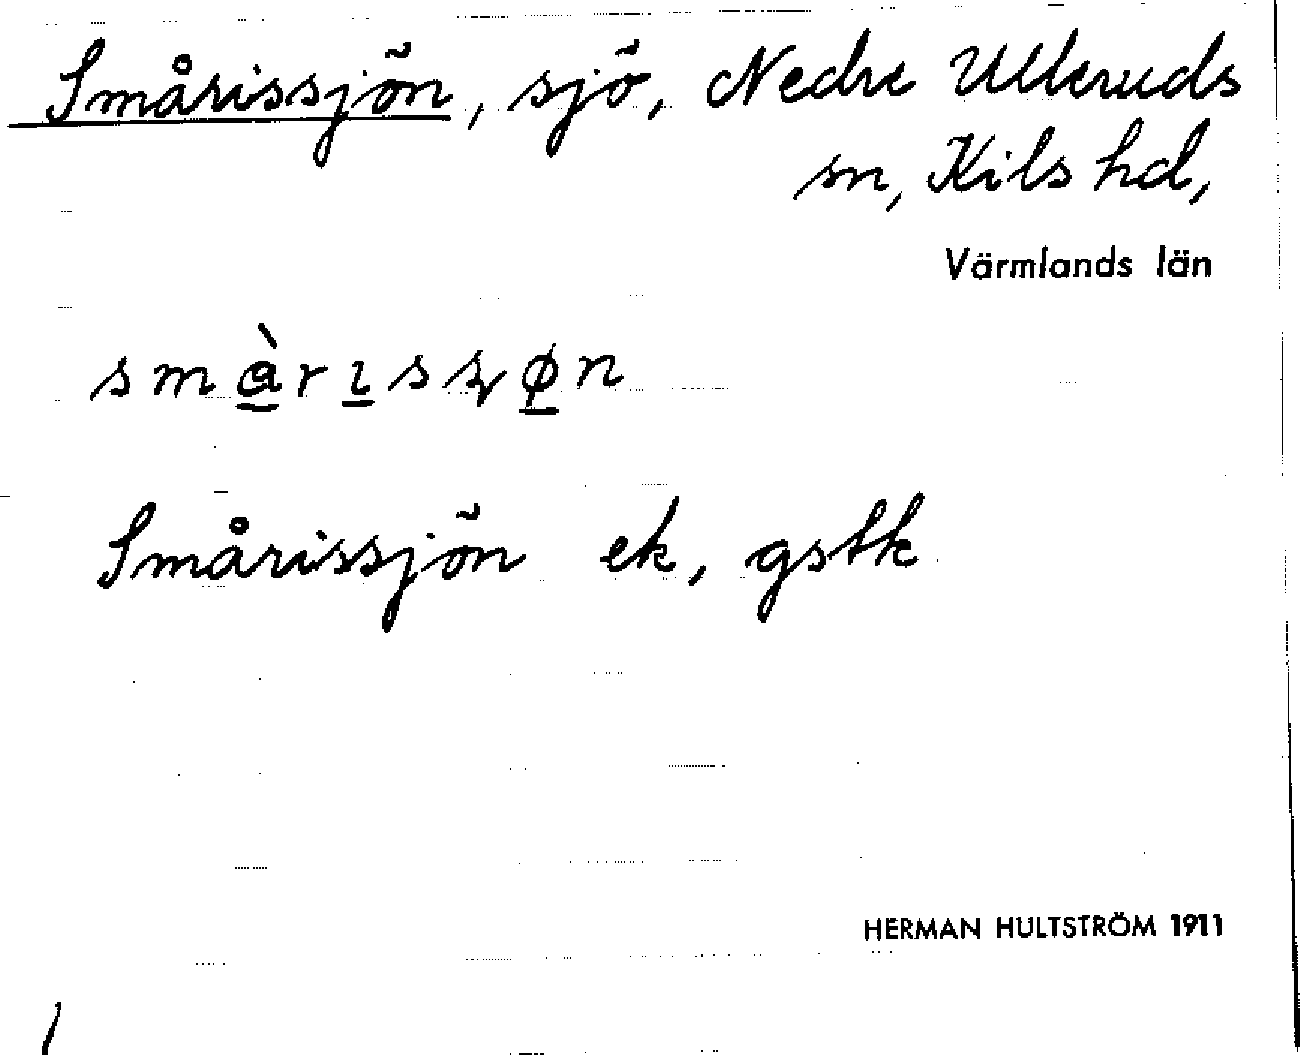 Smårissjön, sjö, Nedre Ulleruds
sn, Kils hd,
Värmlands län
Smårissjön ek, gstk
HERMAN HULTSTRÖM 1911